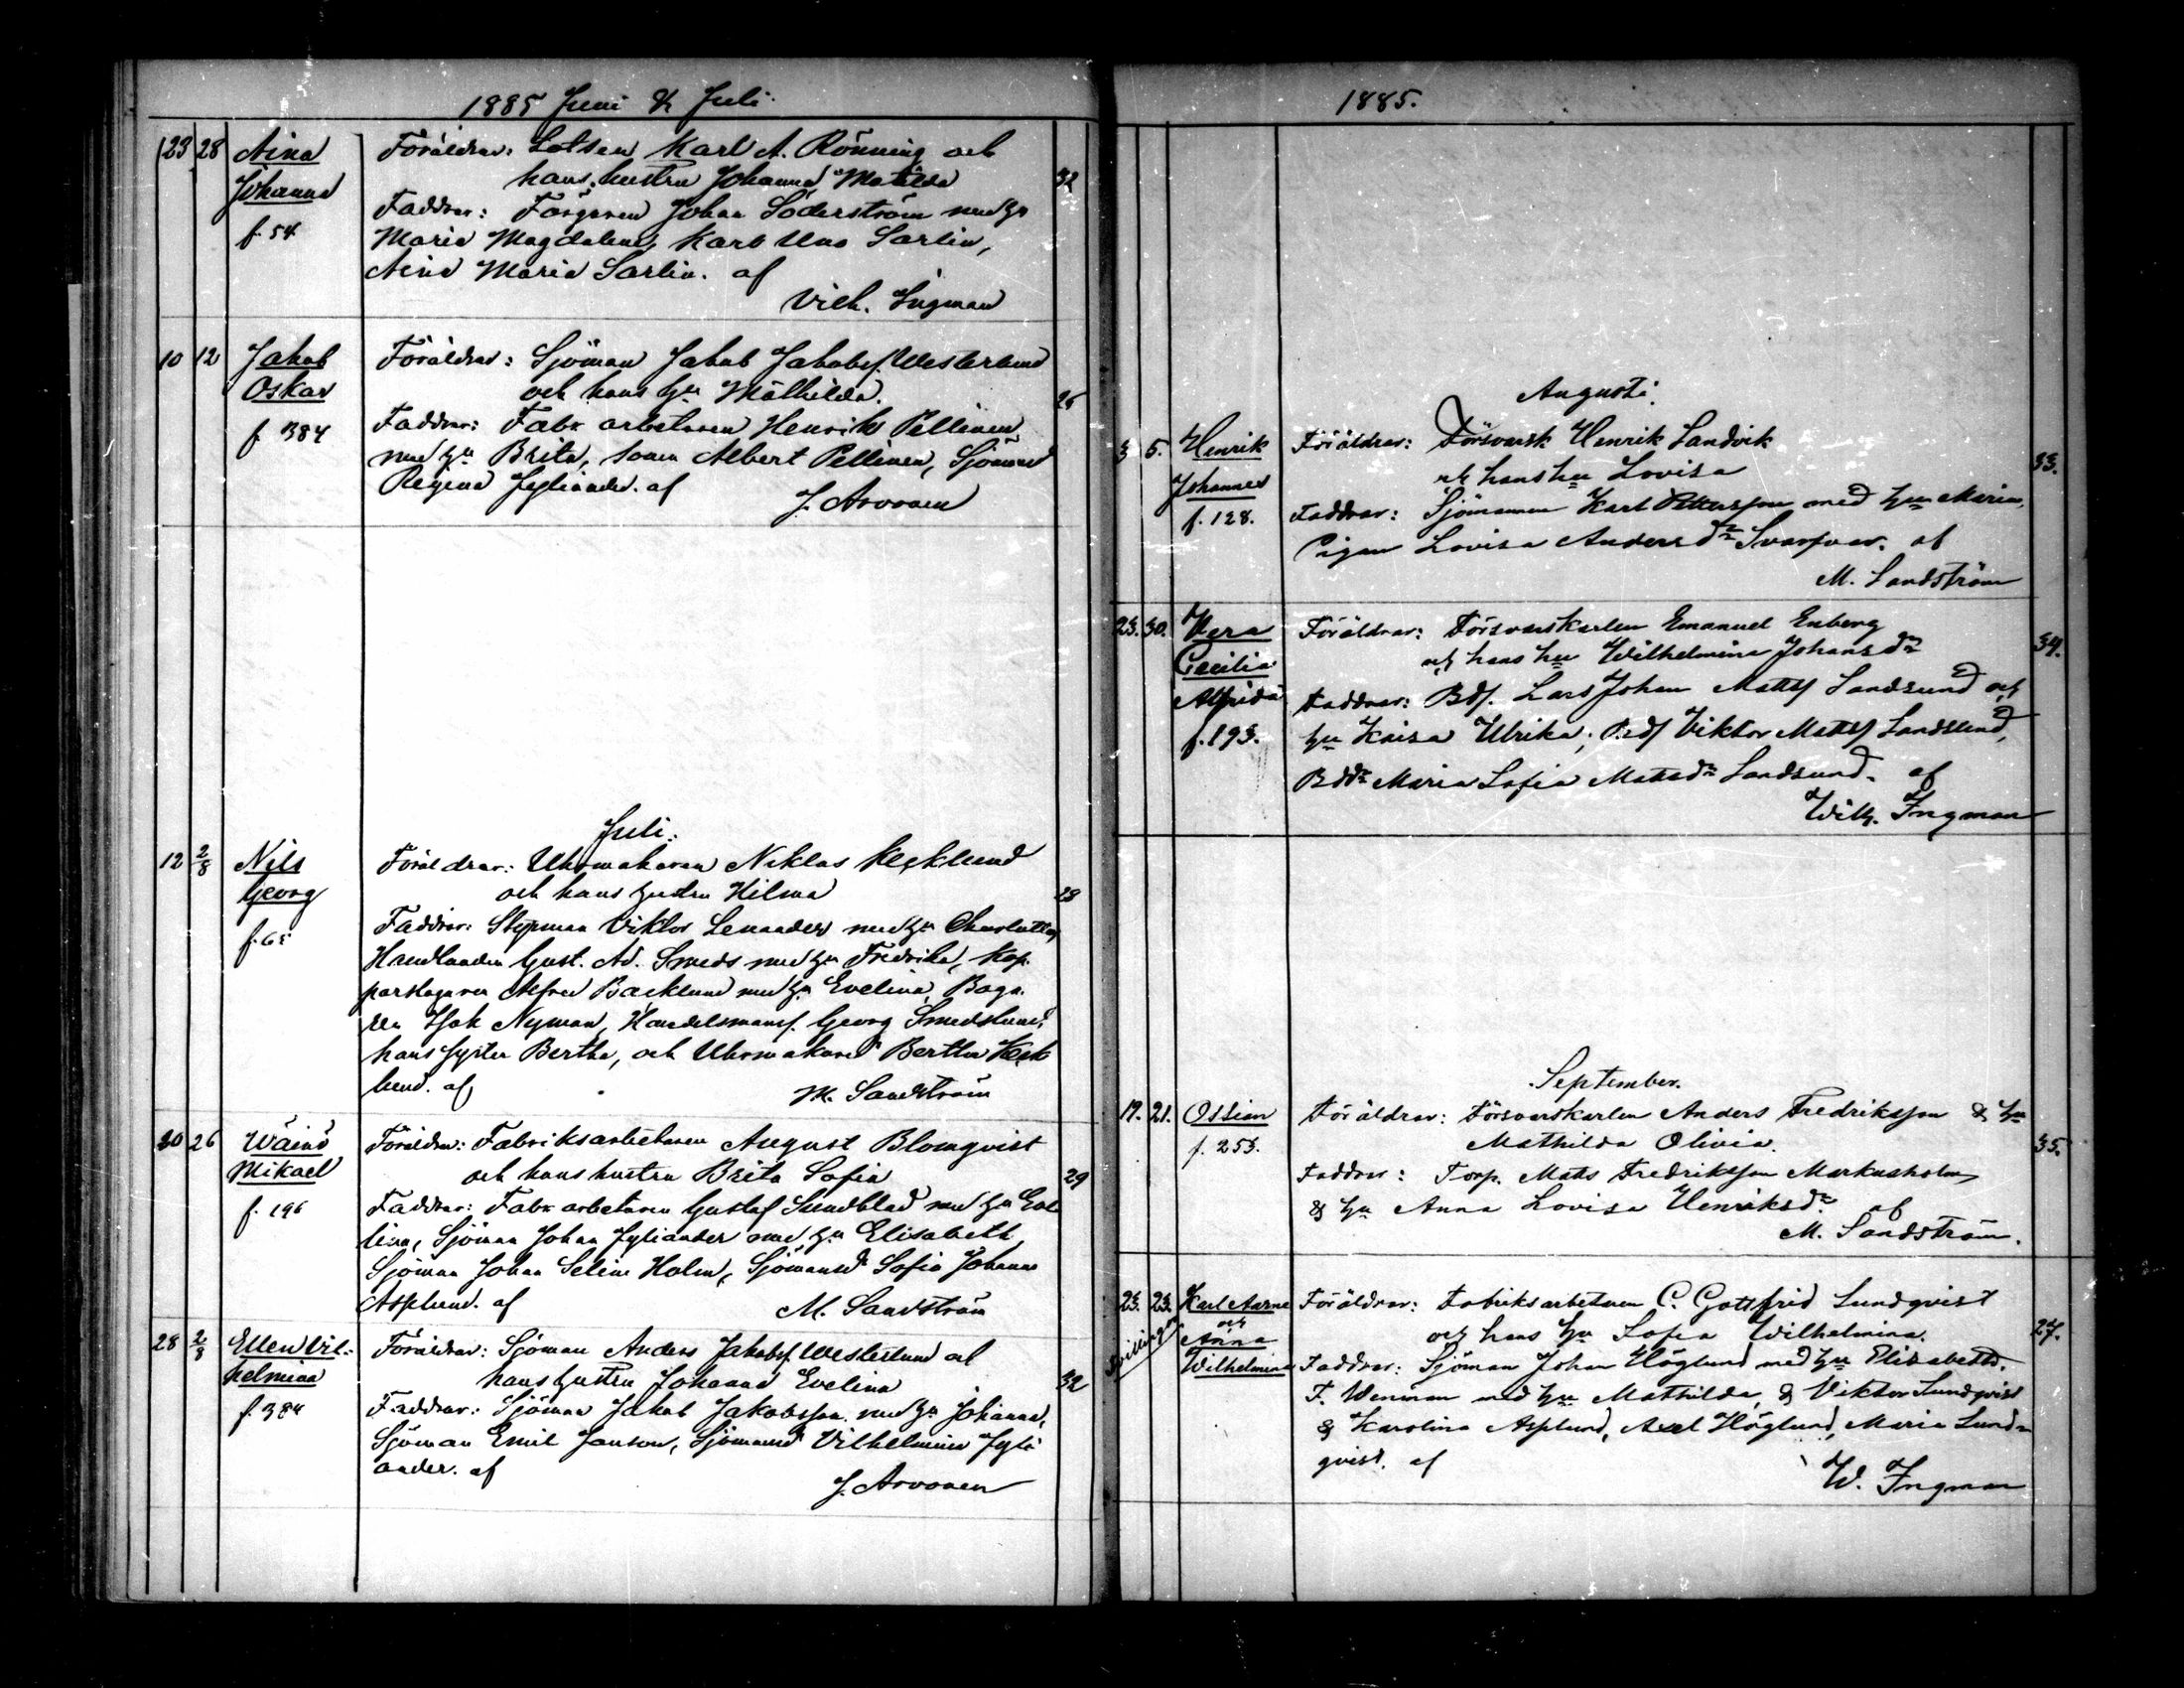 1885 Juni & Juli
23 28 Aina Föräldrar: Lotsen Karl A. Rönning och
Johanna hans hustru Johanna Matilda 32
f. 54 Faddrar: Färgaren Johan Söderström med hu
Maria Magdalena, Karl Uno Sarlin,
Aina Maria Sarlin. af
Vilh. Ingman
10 12 Jakob Föräldrar: Sjöman Jakob Jakobsf. Westerlund
Oskar och hans hu Mathilda.
f. 384 Faddrar: Fabr arbetaren Henrik Pellinen
med hu Brita, sonen Albert Pellinen, Sjömansd
Regina Jyliander. af
J. Arvonen
Juli.
12 2/8 Nils Föräldrar: Uhrmakaren Niklas Kecklund
Georg och hans hustru Hilma 28
Faddrar: Styrman Viktor Lenander med hu Charlotta,
Handlanden Gust. Ad. Smeds med hu Fredrika, Kop-
parslagaren Alfred Backlund med hu Evelina, Baga-
ren Isak Nyman, Handelsmansf. Georg Smedslund,
hans syster Bertha, och Uhrmakared Bertha Keck
lund. af M. Sandström
20 26 Wäinö Föräldrar: Fabriksarbetaren August Blomqvist
Mikael och hans hustru Brita Sofia 29
f. 196 Faddrar: Fabr arbetaren Gustaf Sundblad med hu Eve
lina, Sjöman Johan Jyliander med hu Elisabeth,
Sjöman Johan Selim Holm, Sjömansd Sofia Johanna
Asplund. af M. Sandström
28 2/8 Ellen Vil- Föräldrar: Sjöman Anders Jakobsf. Westerlund och
helmina hans hustru Johanna Evelina 32
f. 384 Faddrar: Sjöman Jakob Jakobsson med hu Johanna,
Sjöman Emil Janson, Sjömansd Vilhelmina Jyli
ander. af
J. Arvonen
1885.
Augusti.
3 5. Henrik Föräldrar: Försvarsk Henrik Sandvik
Johannes och hans hu Lovisa 33.
f. 128. Faddrar: Sjömannen Karl Pettersson med hu Maria,
Pigan Lovisa Andersdr Svarfvar. af
M. Sandström
23. 30. Vera Föräldrar: Försvarskarlen Emanuel Enberg
Cecilia och hans hu Wilhelmina Johansdr 34.
Alfrida Faddrar: Bdf. Lars Johan Mattsf Sandsund och
f. 193. hu Kaisa Ulrika, Bdf Viktor Mattsf Sandsund,
Bddr Maria Sofia Matsdr Sandsund. af
Wilh. Ingman
September.
19. 21. Ossian Föräldrar: Försvarskarlen Anders Fredriksson & hu
f. 253. Mathilda Olivia. 35.
Faddrar: Torp. Matts Fredriksson Markusholm
& hu Anna Lovisa Henriksdr af
M. Sandström.
23. 23. Karl Aarne Föräldrar: Fabriksarbetaren C. Gottfrid Lundqvist
Tvillingar och Anna och hans hu Sofia Wilhelmina. 27.
Wilhelmina Faddrar: Sjöman Johan Höglund med hu Elisabeth,
F. Wenman med hu Mathilda, & Viktor Lundqvist
& Karolina Asplund, Axel Höglund, Maria Lund-
qvist. af
W. Ingman